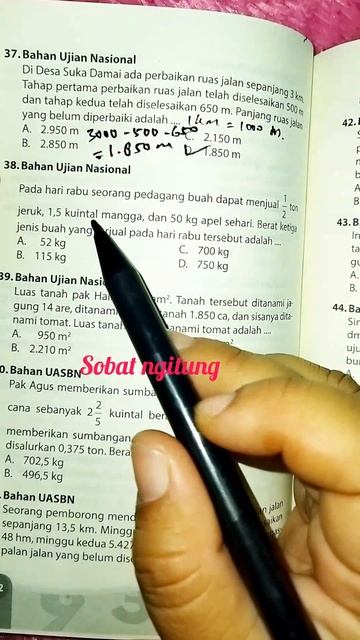 37. Bahan Ujian Nasional
Di Desa Suka Damai ada perbaikan ruas jalan sepanjang 3 km.
Tahap pertama perbaikan ruas jalan telah diselesaikan 500 m
dan tahap kedua telah diselesaikan 650 m. Panjang ruas jalan
yang belum diperbaiki adalah .... 1 km = 1000 m.
A. 2.950 m 3000 - 500 - 650 C. 2.150 m
B. 2.850 m = 1.850 m D. 1.850 m
38. Bahan Ujian Nasional
Pada hari rabu seorang pedagang buah dapat menjual 1/2 ton
jeruk, 1,5 kuintal mangga, dan 50 kg apel sehari. Berat ketiga
jenis buah yang terjual pada hari rabu tersebut adalah ....
A. 52 kg C. 700 kg
B. 115 kg D. 750 kg
39. Bahan Ujian
Luas tanah pak m². Tanah tersebut ditanami ja-
gung 14 are, ditanami tanah 1.850 ca, dan sisanya dita-
nami tomat. Luas tanah ditanami tomat adalah ....
A. 950 m²
B. 2.210 m²
Sobat ngitung
0. Bahan UASBN
Pak Agus memberikan
cana sebanyak 2 2/5 kuintal
memberikan sumbangan
disalurkan 0,375 ton.
A. 702,5 kg
B. 496,5 kg
. Bahan UASBN
Seorang pemborong
sepanjang 13,5 km.
48 hm, minggu kedua
palan jalan yang belum
42.
43. B
44. Ba